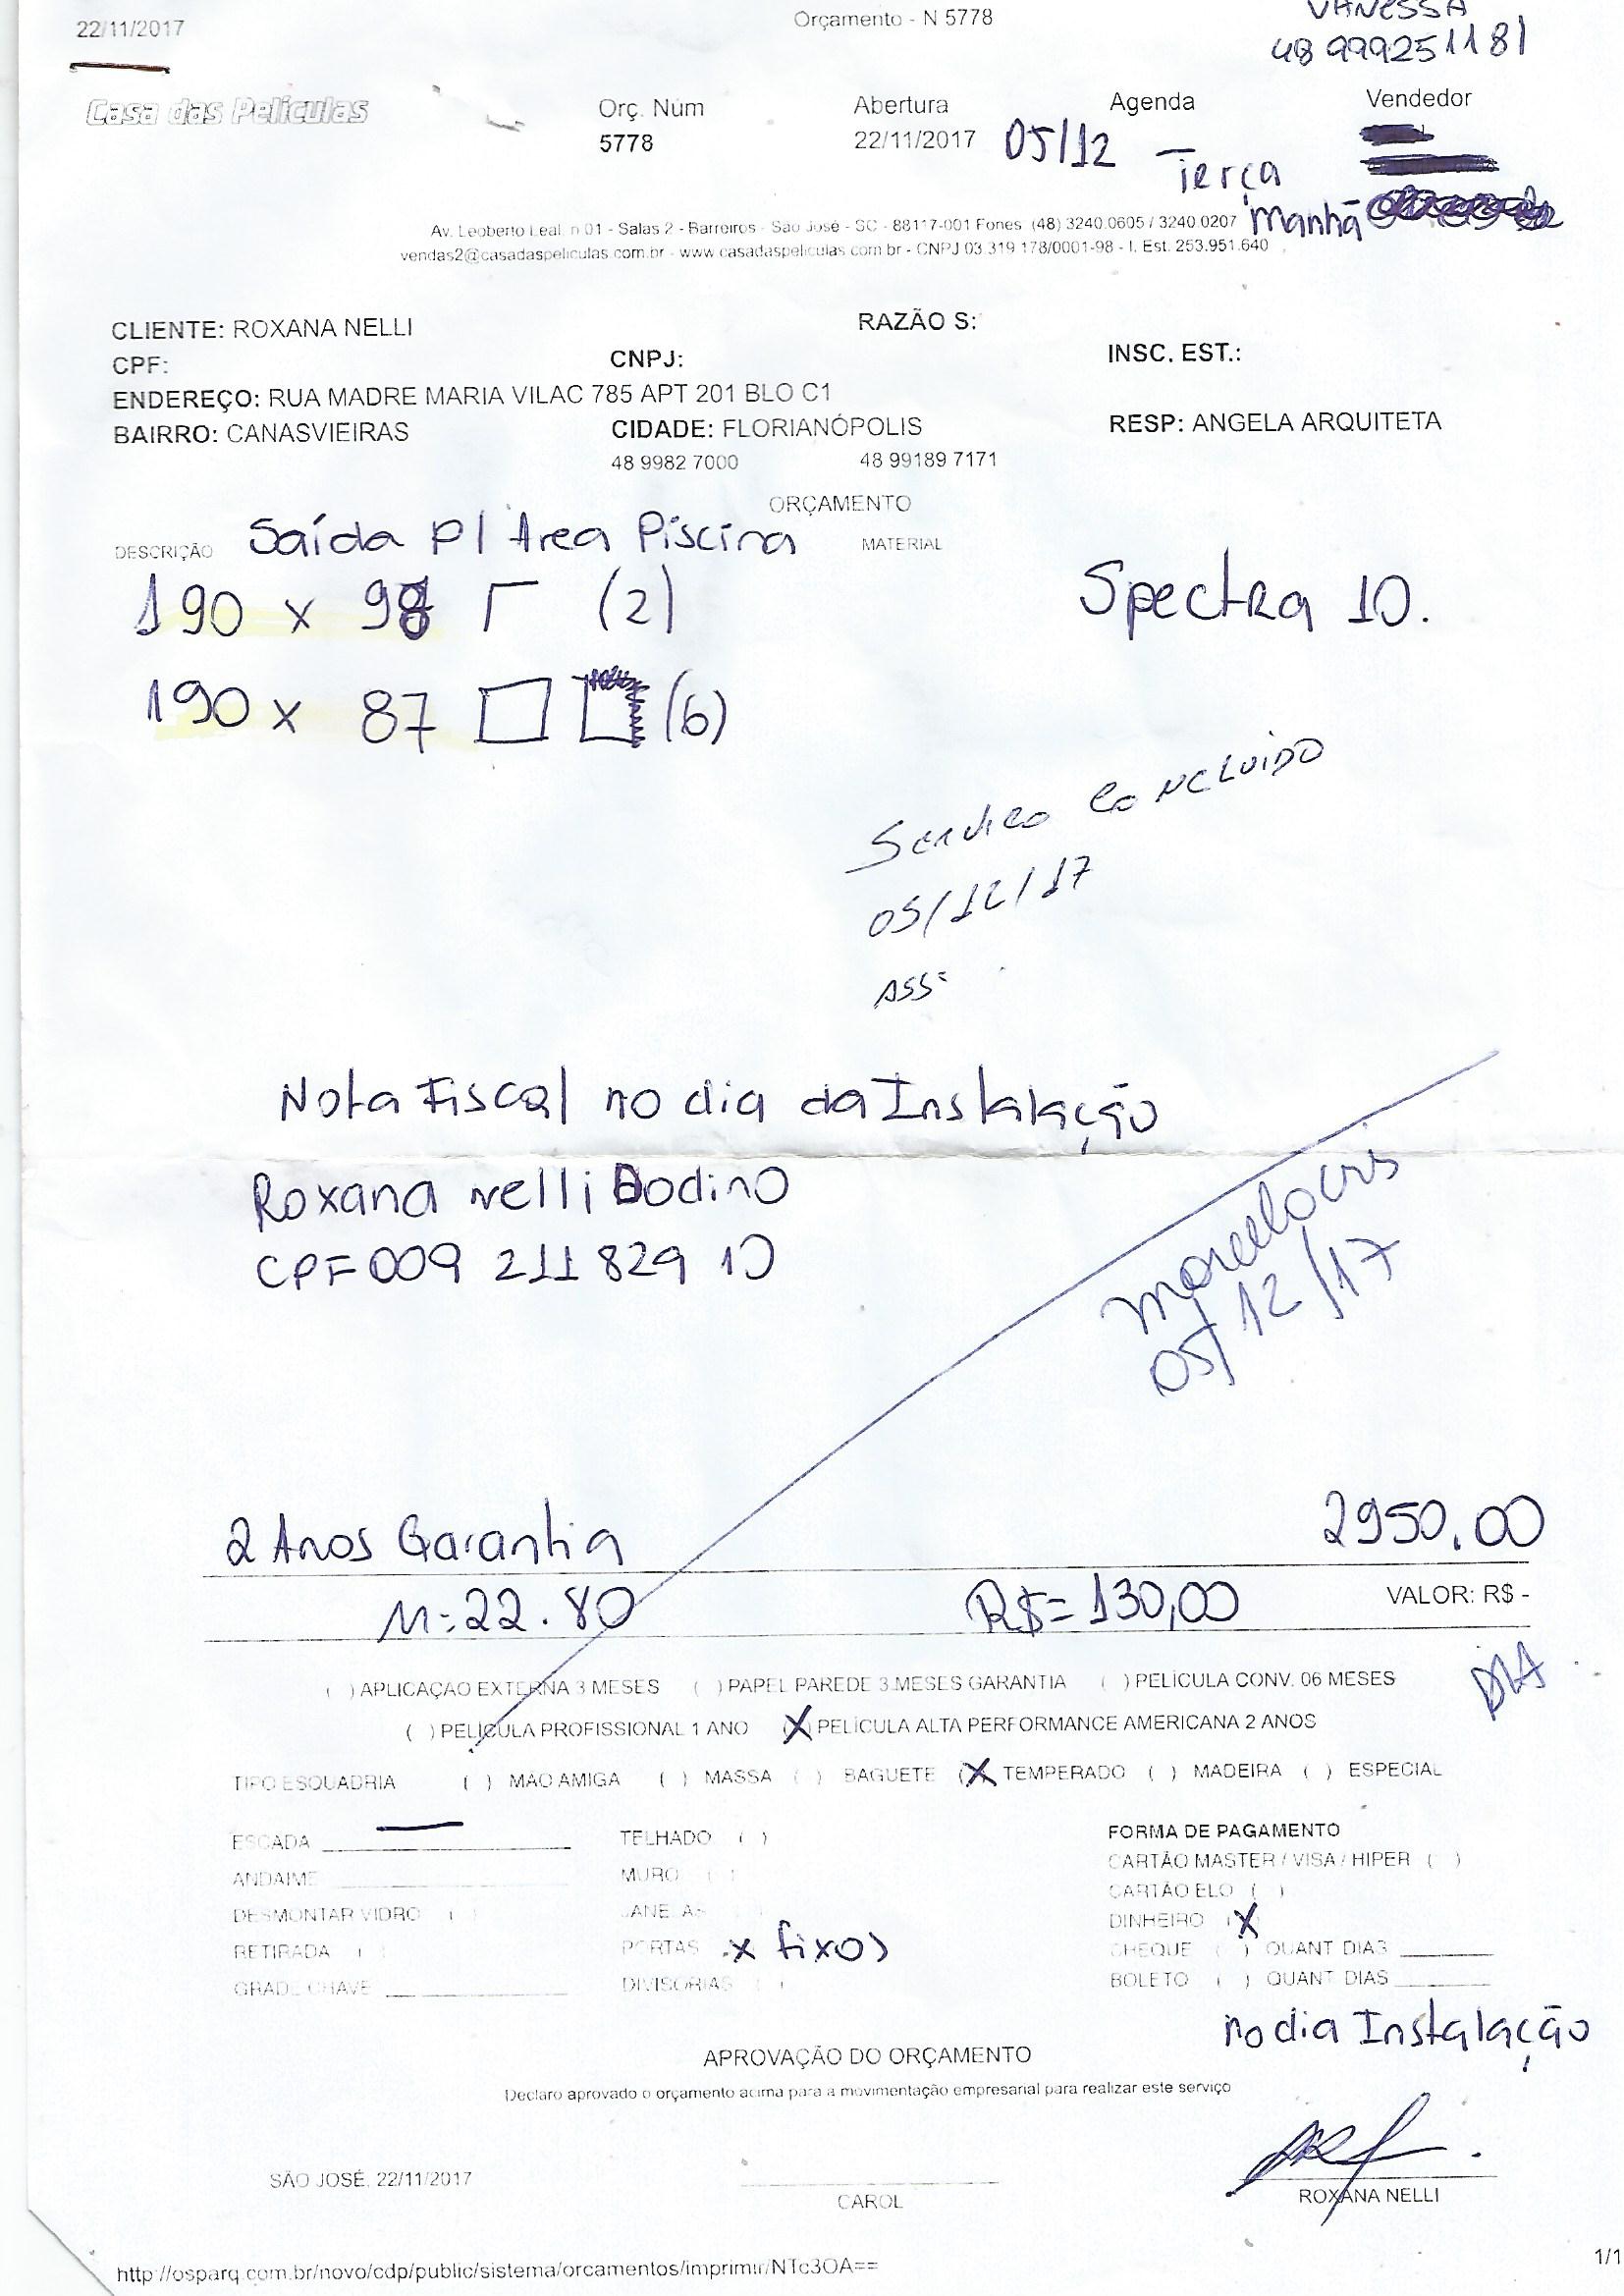 22/11/2017
Orçamento - N 5778
VANESSA
48 999251181
Casa das Películas
Orç. Núm
Abertura
Agenda
Vendedor
5778
22/11/2017
05/12
Terça
Manhã
Av. Leoberto Leal, n 01 - Salas 2 - Barreiros - São José - SC - 88117-001 Fones (48) 3240.0605 / 3240.0207
vendas2@casadaspeliculas.com.br - www.casadaspeliculas.com.br - CNPJ 03.319.178/0001-98 - I. Est. 253.951.640
CLIENTE: ROXANA NELLI
RAZÃO S:
CPF:
CNPJ:
INSC. EST.:
ENDEREÇO: RUA MADRE MARIA VILAC 785 APT 201 BLO C1
BAIRRO: CANASVIEIRAS
CIDADE: FLORIANÓPOLIS
RESP: ANGELA ARQUITETA
48 9982 7000
48 99189 7171
ORÇAMENTO
DESCRIÇÃO
Saída P/ Area Piscina
MATERIAL
190 x 98 (2)
Spectra 10.
190 x 87 (6)
Servico CONCLUIDO
05/12/17
ASS:
Nota Fiscal no dia da Instalação
Roxana Nelli Bodino
CPF 009 211 829 10
05/12/17
2 Anos Garantia
2950,00
M=22.80
R$=130,00
VALOR: R$ -
( ) APLICAÇÃO EXTERNA 3 MESES ( ) PAPEL PAREDE 3 MESES GARANTIA ( ) PELÍCULA CONV. 06 MESES
( ) PELÍCULA PROFISSIONAL 1 ANO (X) PELÍCULA ALTA PERFORMANCE AMERICANA 2 ANOS
TIPO ESQUADRIA ( ) MÃO AMIGA ( ) MASSA ( ) BAGUETE (X) TEMPERADO ( ) MADEIRA ( ) ESPECIAL
ESCADA
TELHADO ( )
FORMA DE PAGAMENTO
ANDAIME
MURO ( )
CARTÃO MASTER / VISA / HIPER ( )
DESMONTAR VIDRO ( )
JANELAS
CARTÃO ELO ( )
RETIRADA ( )
PORTAS x fixos
DINHEIRO (X)
GRADE CHAVE
DIVISÓRIAS ( )
CHEQUE ( ) QUANT DIAS
BOLETO ( ) QUANT DIAS
no dia Instalação
APROVAÇÃO DO ORÇAMENTO
Declaro aprovado o orçamento acima para a movimentação empresarial para realizar este serviço
SÃO JOSÉ, 22/11/2017
CAROL
ROXANA NELLI
http://osparq.com.br/novo/cdp/public/sistema/orcamentos/imprimir/NTc3OA==
1/1